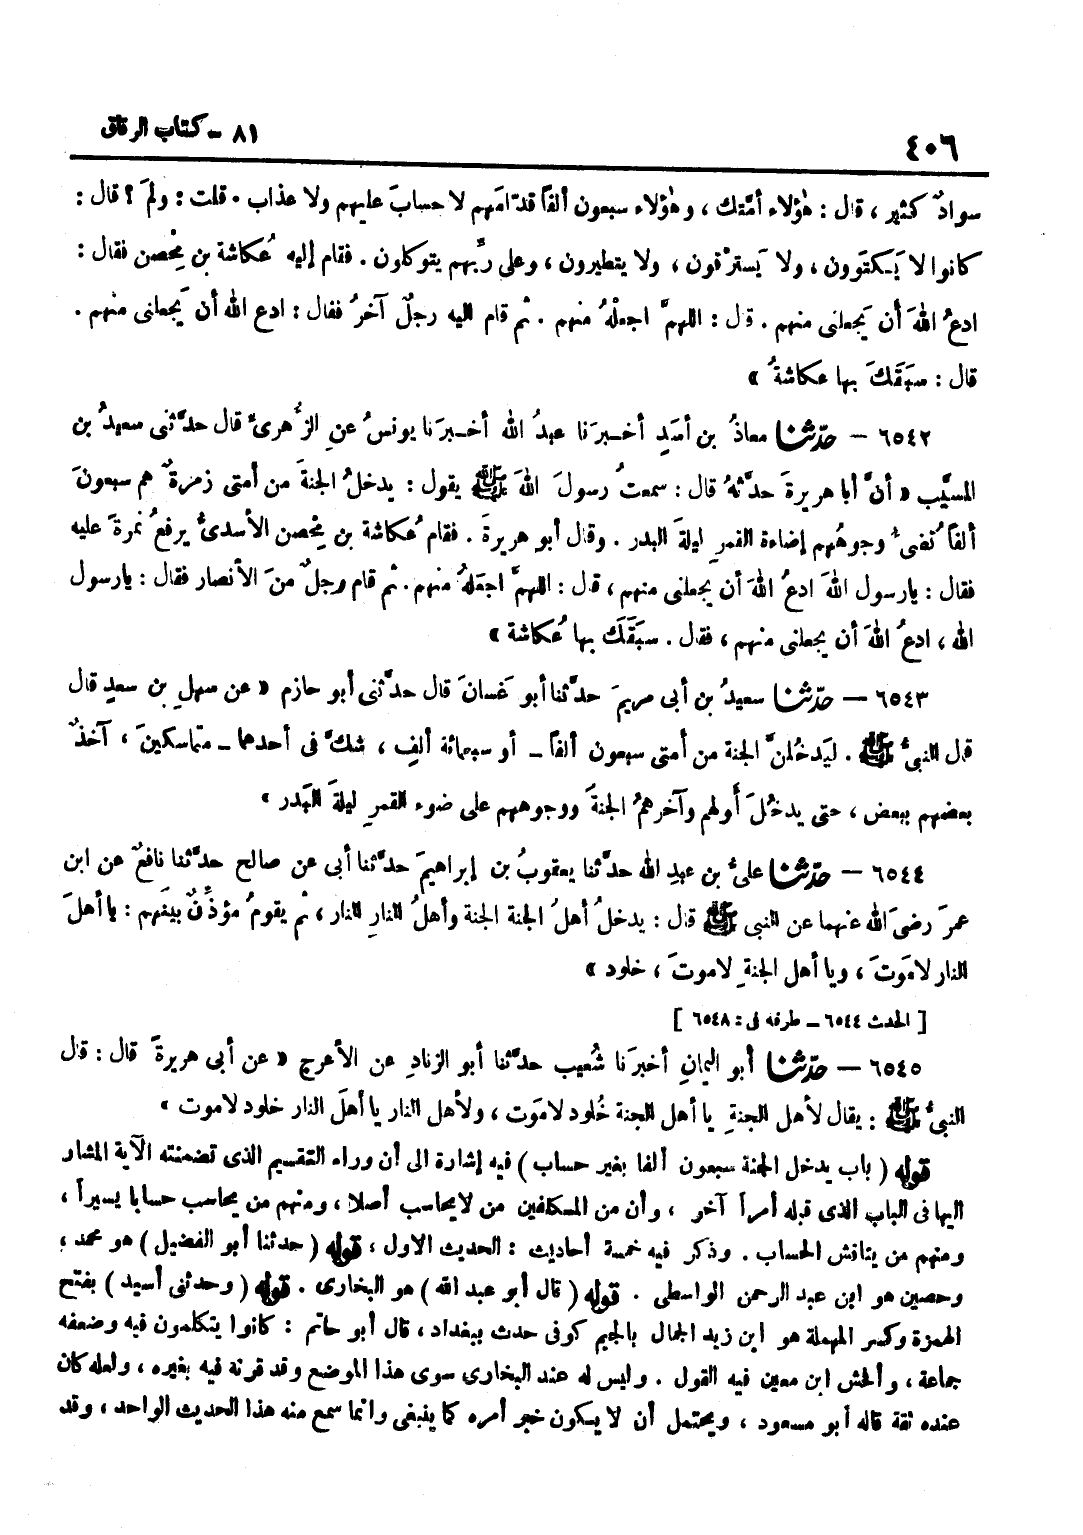 ٤٠٦
٨١ - كتاب الرقاق
سوادٌ كثير ، قال : هؤلاء أمَّتك ، وهؤلاء سبعون ألفاً قدّامَهم لا حسابَ عليهم ولا عذاب . قلت : ولمَ ؟ قال :
كانوا لا يَكتَوون ، ولا يَسترْقون ، ولا يتطيرون ، وعلى ربِّهم يتوكلون . فقام إليه عُكاشة بن مِحْصن فقال :
ادعُ اللهَ أن يَجعلنى منهم . قال : اللهمَّ اجعلْهُ منهم . ثم قام اليه رجلٌ آخرُ فقال : ادع الله أن يَجعلنى منهم .
قال : سبَقَكَ بها عكاشةُ »
٦٥٤٢ – حدّثنا معاذُ بن أسَدٍ أخبرَنا عبدُ الله أخبرَنا يونسُ عنِ الزُّهرىِّ قال حدَّثنى سعيدُ بن
المسيَّب « أنَّ أبا هريرةَ حدَّثهُ قال : سمعتُ رسولَ اللهَ ﷺ يقول : يدخلُ الجنةَ من أمتى زمرةٌ هم سبعونَ
ألفاً تُضىءُ وجوهُهم إضاءة القمرِ ليلةَ البدر . وقال أبو هريرةَ . فقام عُكاشة بن مِحْصن الأسدىُّ يرفعُ نمرةً عليه
فقال : يارسول اللهَ ادعُ اللهَ أن يجعلنى منهم ، قال : اللهمَّ اجعَلهُ منهم . ثم قام رجلٌ منَ الأنصار فقال : يارسول
الله ، ادعُ اللهَ أن يجعلنى منهم ، فقال . سبَقَكَ بها عُكاشة »
٦٥٤٣ – حدّثنا سعيدُ بن أبى مريمَ حدَّثنا أبو غَسانَ قال حدَّثنى أبو حازم « عن سهلِ بن سعدٍ قال
قال النبىُّ ﷺ . ليَدخُلنَّ الجنة من أمتى سبعون ألفاً – أو سبعمائة ألفٍ ، شكَّ فى أحدهما – متماسكينَ ، آخذٌ
بعضهم ببعض ، حتى يدخُلَ أولهم وآخرهمُ الجنةَ ووجوههم على ضوء القمرِ ليلةَ البَدر »
٦٥٤٤ – حدّثنا علىُّ بن عبدِ الله حدَّثنا يعقوبُ بن إبراهيمَ حدَّثنا أبى عن صالح حدَّثنا نافعٌ عن ابن
عمرَ رضىَ الله عنهما عن النبى ﷺ قال : يدخلُ أهلُ الجنة الجنة وأهلُ النارِ النار ، ثم يقومُ مؤذِّنٌ بينَهم : يا أهلَ
النار لا مَوتَ ، ويا أهل الجنةِ لا موتَ ، خلود »
[ الحدث ٦٥٤٤ – طرفه فى : ٦٥٤٨ ]
٦٥٤٥ – حدّثنا أبو اليمانِ أخبرَنا شُعيب حدَّثنا أبو الزنادِ عن الأعرج « عن أبى هريرةَ قال : قال
النبىُّ ﷺ : يقال لأهل الجنةِ يا أهل الجنة خُلود لا مَوت ، ولأهل النار يا أهلَ النار خلود لا موت »
قوله ( باب يدخل الجنة سبعون ألفا بغير حساب ) فيه إشارة الى أن وراء التقسيم الذى تضمنته الآية المشار
اليها فى الباب الذى قبله أمرا آخر ، وأن من المكلفين من لا يحاسب أصلا ، ومنهم من يحاسب حسابا يسيرا ،
ومنهم من يناقش الحساب . وذكر فيه خمسة أحاديث : الحديث الاول ، قوله ( حدثنا أبو الفضيل ) هو محمد ،
وحصين هو ابن عبد الرحمن الواسطى . قوله ( قال أبو عبد الله ) هو البخارى . قوله ( وحدثنى أسيد ) بفتح
الهمزة وكسر المهملة هو ابن زيد الجمال بالجيم كوفى حدث ببغداد ، قال أبو حاتم : كانوا يتكلمون فيه وضعفه
جماعة ، وأفحش ابن معين فيه القول . وليس له عند البخارى سوى هذا الموضع وقد قرنه فيه بغيره ، ولعله كان
عنده ثقة قاله أبو مسعود ، ويحتمل أن لا يكون خبر أمره كما ينبغى وانما سمع منه هذا الحديث الواحد ، وقد